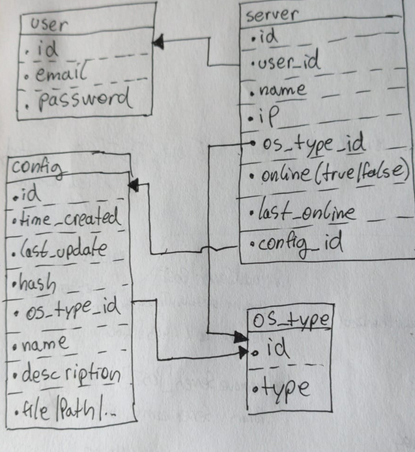 user
• id
• email
• password
server
• id
• user_id
• name
• ip
• os_type_id
• online (true/false)
• last_online
• config_id
config
• id
• time_created
• last_update
• hash
• os_type_id
• name
• description
• file/Path/...
os_type
• id
• type